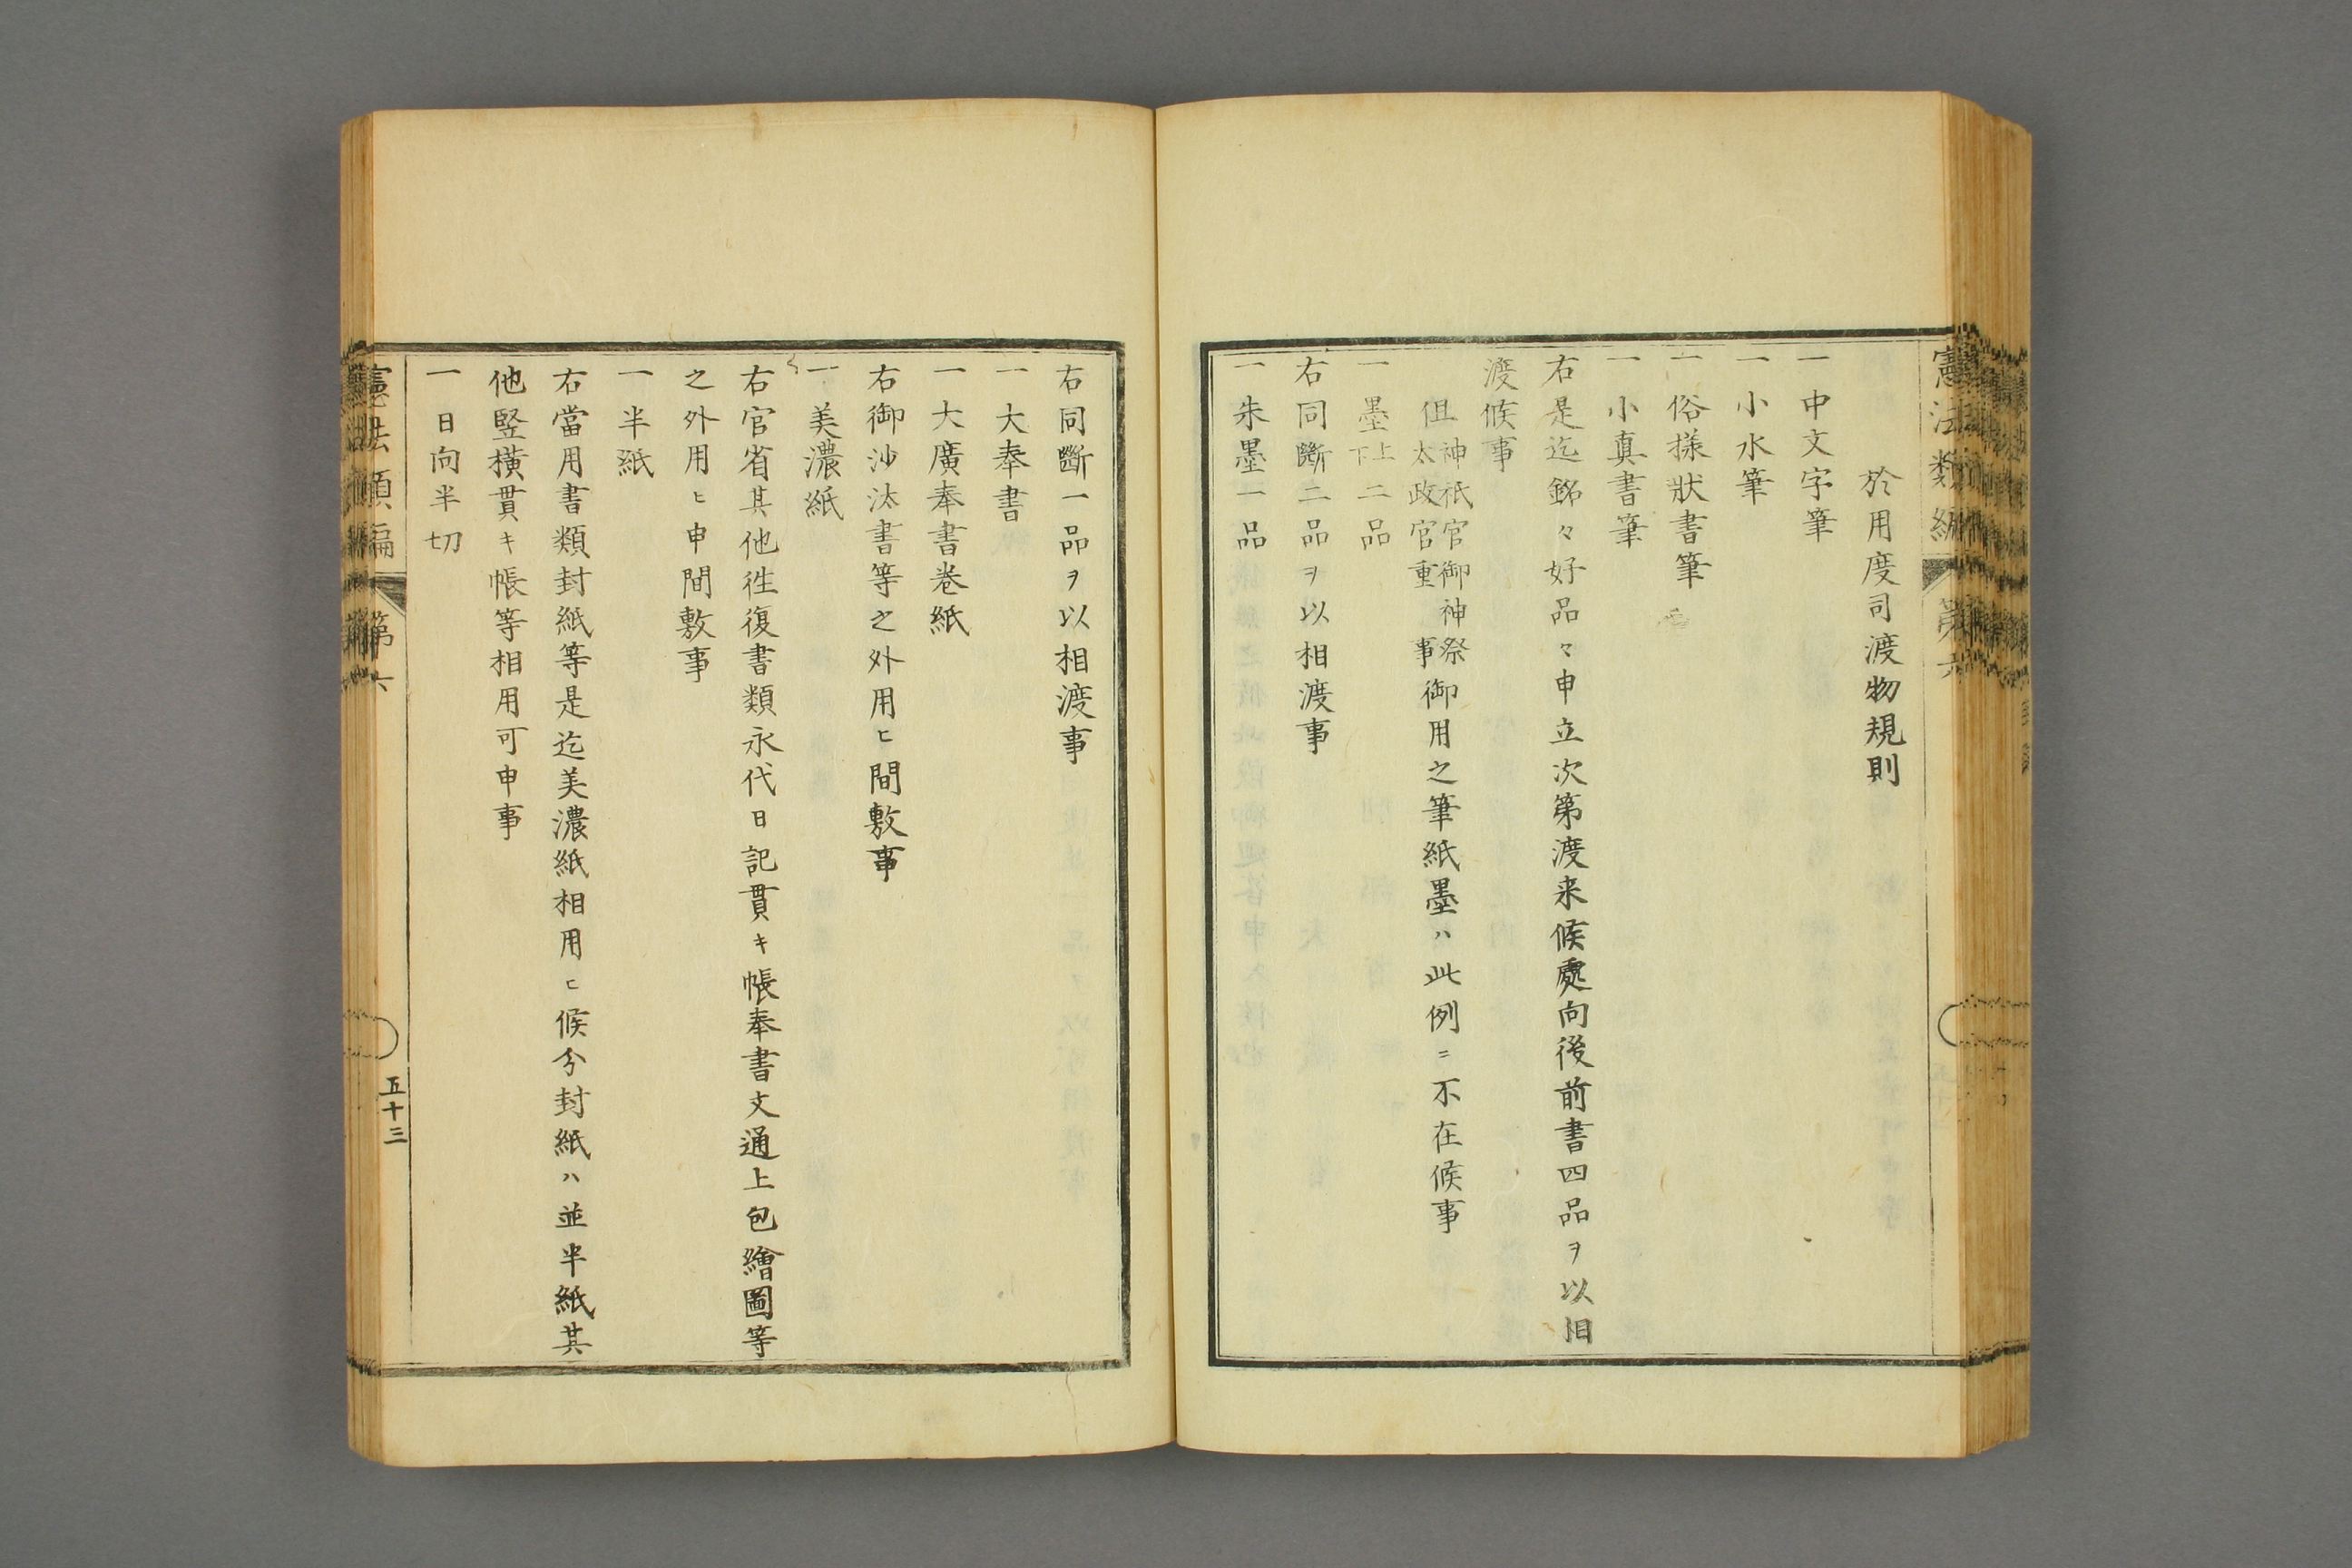 憲法類編 第六
於用度司渡物規則
一 中文字筆
一 小水筆
一 俗樣狀書筆
一 小真書筆
右是迄銘々好品々申立次第渡来候處向後前書四品ヲ以相
渡候事
但神祇官御神祭太政官重事御用之筆紙墨ハ此例ニ不在候事
一 墨上下二品
右同斷二品ヲ以相渡事
一 朱墨一品
右同斷一品ヲ以相渡事
一 大奉書
一 大廣奉書卷紙
右御沙汰書等之外用ヒ間敷事
一 美濃紙
右官省其他徃復書類永代日記貫キ帳奉書文通上包繪圖等
之外用ヒ申間敷事
一 半紙
右當用書類封紙等是迄美濃紙相用ヒ候分封紙ハ並半紙其
他竪横貫キ帳等相用可申事
一 日向半切
憲法類編 第六
五十三